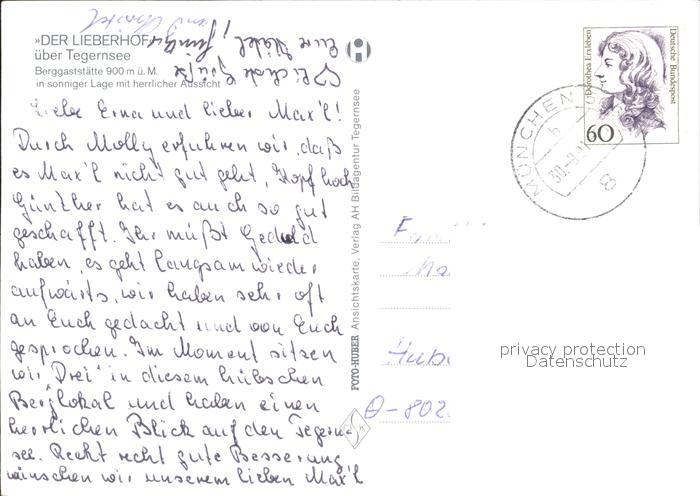 »DER LIEBERHOF«
über Tegernsee
Berggaststätte 900 m ü. M.
in sonniger Lage mit herrlicher Aussicht
Liebe Erna und lieber Max'l!
Durch Molly erfuhren wir, daß
es Max'l nicht gut geht, Kopf hoch
Günther hat es auch so gut
geschafft. Ihr müßt Geduld
haben, es geht langsam wieder
aufwärts, wir haben sehr oft
an Euch gedacht und von Euch
gesprochen. Im Moment sitzen
wir "Drei" in diesem hübschen
Berglokal und haben einen
herrlichen Blick auf den Tegern-
see. Recht recht gute Besserung
wünschen wir unserem lieben Max'l
Herzliche Grüße
Eure
und
FOTO-HUBER Ansichtskarte, Verlag AH Bildagentur Tegernsee
Dorothea Erxleben
Deutsche Bundespost
60
MÜNCHEN
30.-9.
8
Fam
Ma
Hub
D-802
privacy protection
Datenschutz